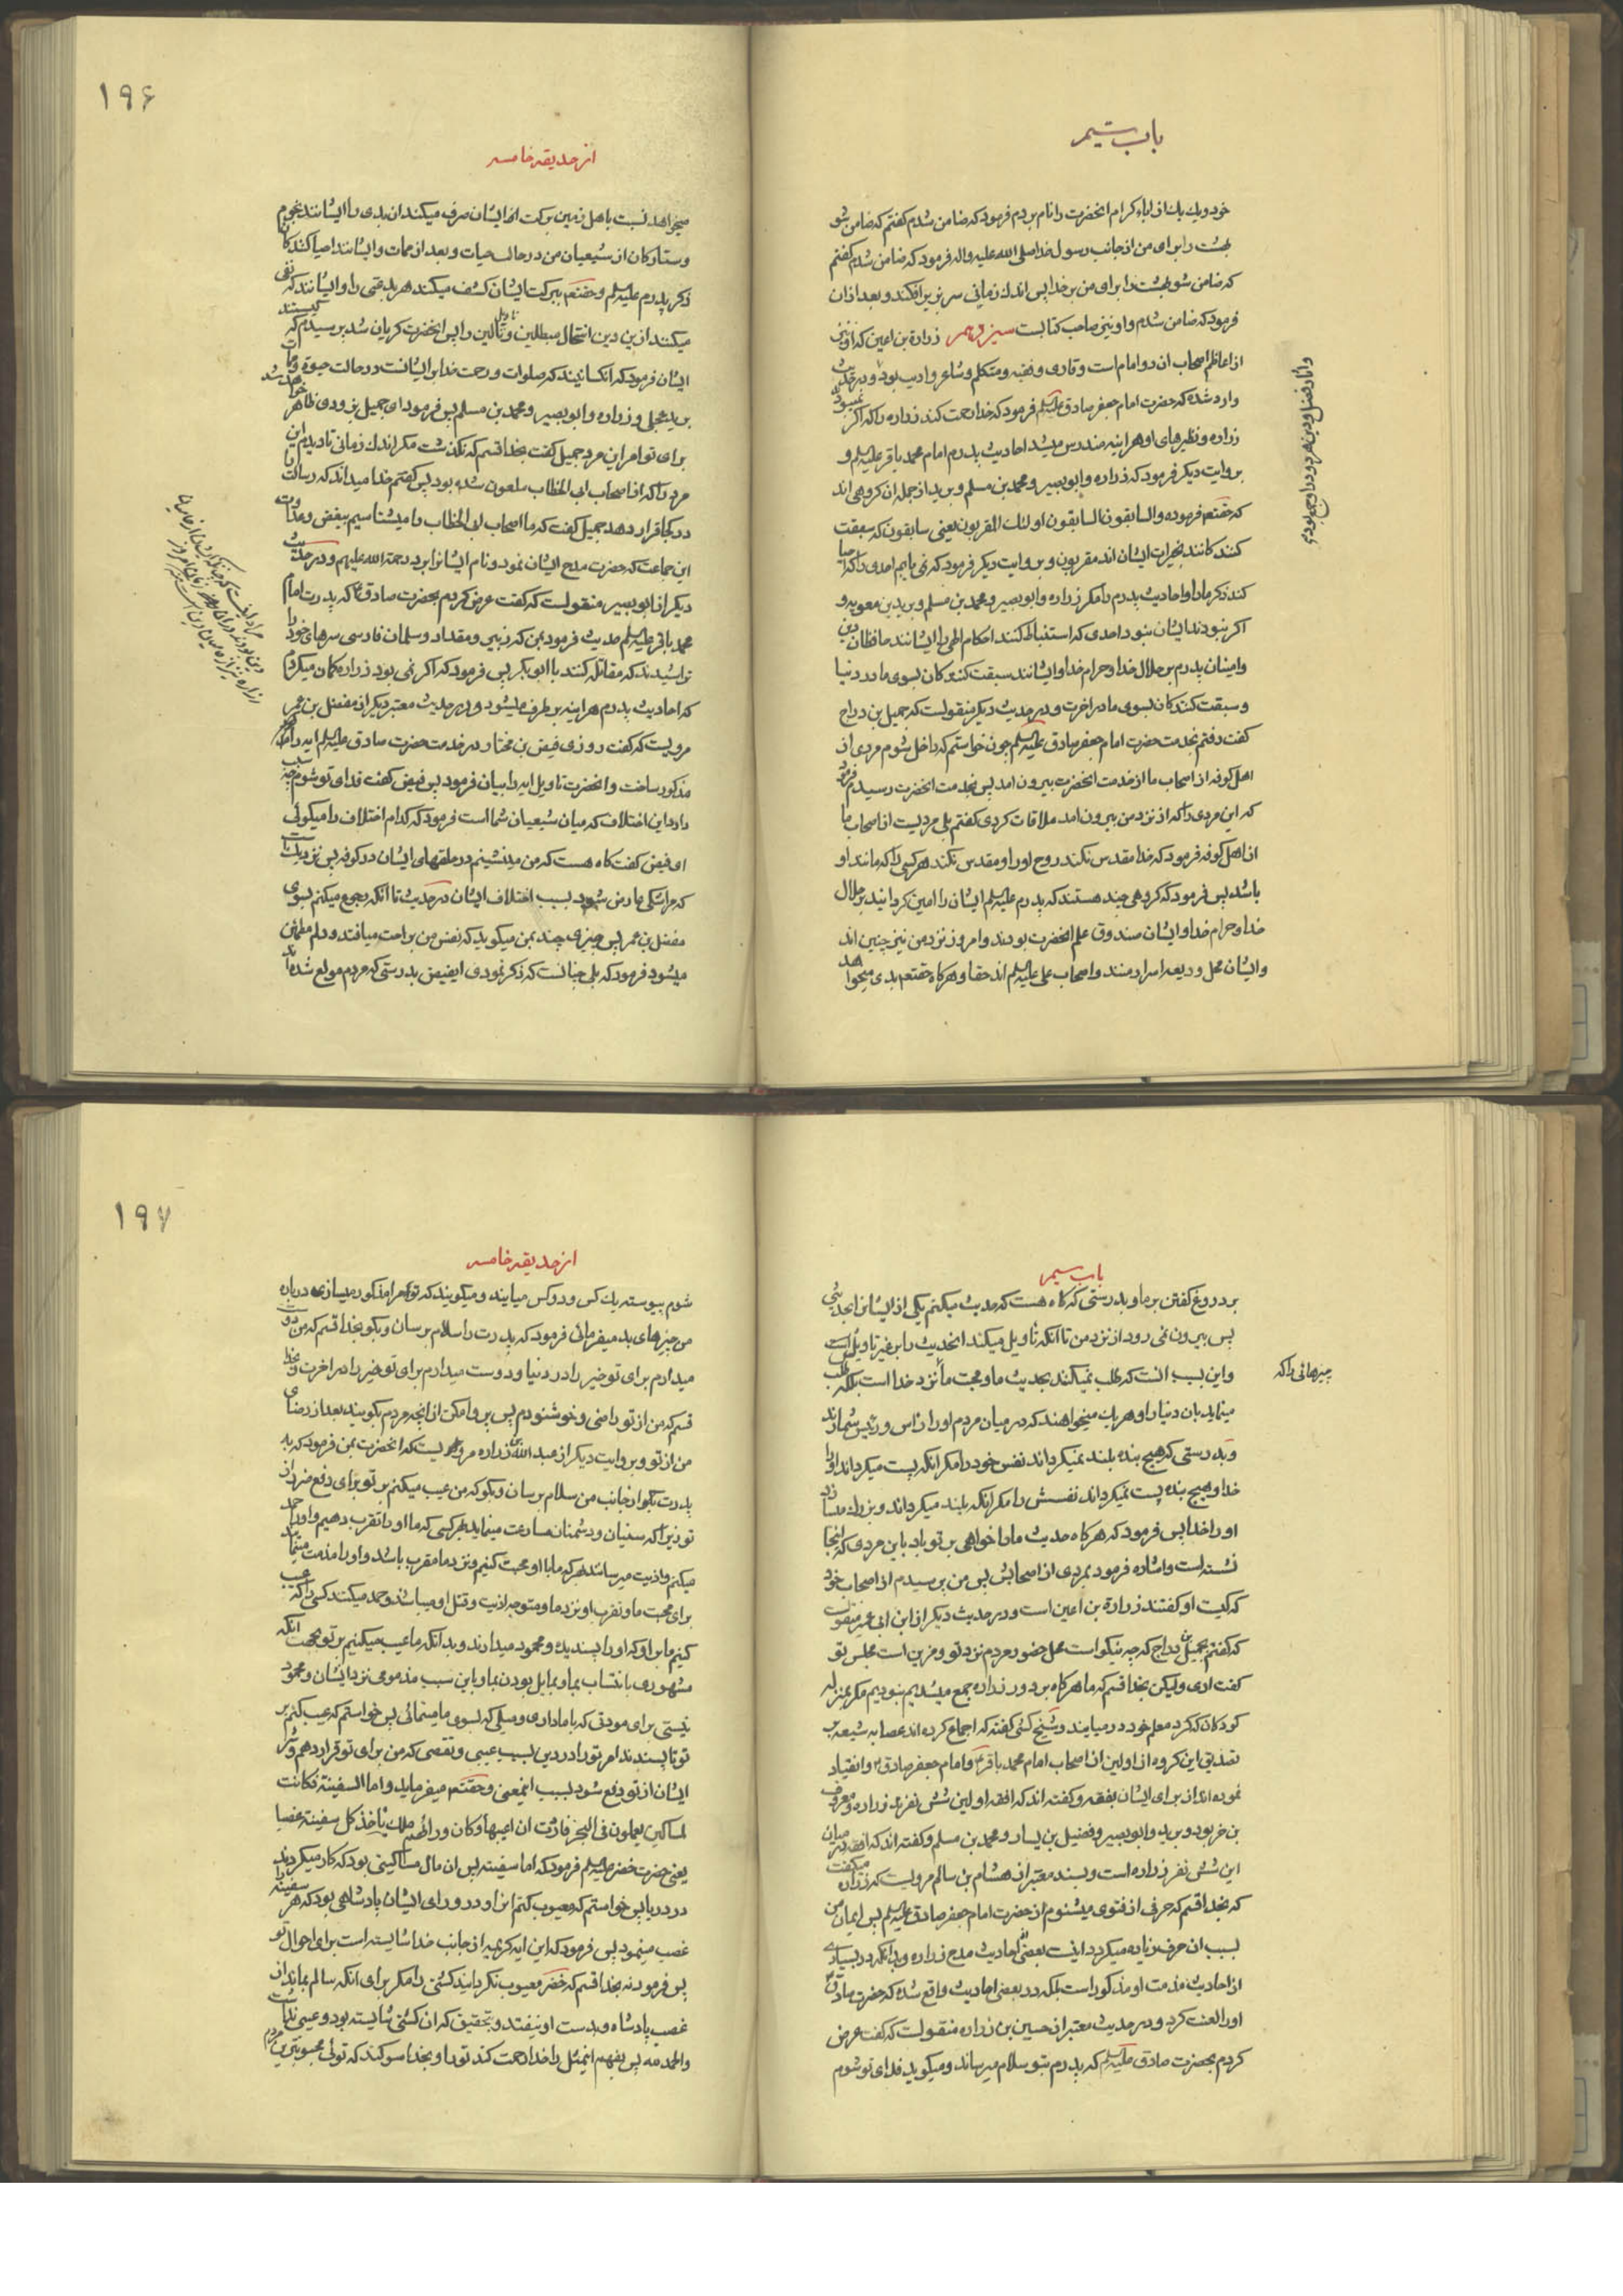 باب سیم
خود و یک یک از اباء کرام انحضرت را نام بردم فرمود که ضامن شدم کفتم که ضامن شو
بهشت را برای من از جانب رسول خدا صلی الله علیه واله فرمود که ضامن شدم کفتم
که ضامن شو بهشت را برای من بر خدا پس اندک زمانی سر بزیر افکند و بعد از ان
فرمود که ضامن شدم و او نیز صاحب کتابست سیزدهم زرارة بن اعین که او نیز
از اعاظم اصحاب ان دو امام است و قاری و فقیه و متکلم و شاعر و ادیب بود و در حدیث
وارد شده که حضرت امام جعفر صادق علیه السلم فرمود که خدا رحمت کند زراره را که اکر نمیبود
زراره و نظیرهای او هر اینه مندرس میشد احادیث پدرم امام محمد باقر علیه السلم و
بروایت دیکر فرمود که زراره و ابو بصیر و محمد بن مسلم و برید از جمله ان کروهی اند
که حقتعم فرموده والسابقون السابقون اولئک المقربون یعنی سابقون که سبقت
کنندکانند بخیرات ایشان اند مقربون و بروایت دیکر فرمود که نمی یابم احدی را که احیا
کند ذکر ما را و احادیث پدرم را مکر زراره و ابو بصیر و محمد بن مسلم و برید بن معویه و
اکر نبودند ایشان نبود احدی که استنباط کنند احکام الهی را ایشانند حافظان دین
و امینان پدرم بر حلال خدا و حرام خدا و ایشانند سبقت کنندکان بسوی ما در دنیا
و سبقت کنندکان بسوی ما در اخرت و در حدیث دیکر منقولست که جمیل بن دراج
کفت رفتم بخدمت حضرت امام جعفر صادق علیه السلم چون خواستم که داخل شوم مردی از
اهل کوفه از اصحاب ما از خدمت انحضرت بیرون امد پس بخدمت انحضرت رسیدم فرمود
که این مردی را که از نزد من بیرون امد ملاقات کردی کفتم بلی مردیست از اصحاب ما
از اهل کوفه فرمود که خدا مقدس نکند روح او را و مقدس نکند هر کسی را که مانند او
باشد پس فرمود که کروهی چند هستند که پدرم علیه السلم ایشان را امین کردانید بر حلال
خدا و حرام خدا و ایشان صندوق علم انحضرت بودند و امروز نزد من نیز چنین اند
و ایشان محل ودیعه اسرار منند و اصحاب علی علیه السلم اند حقا و هر کاه حقتعم بدی میخواهد
و اثار فضل و دین هر دو در او جمع بودی
۱۹۶
از حدیقه خامسه
میخواهد نسبت باهل زمین ببرکت انها ایشان صرف میکند ان بدی را ایشانند نجوم
و ستارکان از شیعیان من در حال حیات و بعد از ممات و ایشانند احیا کنندکان
ذکر پدرم علیه السلم و حقتعم ببرکت ایشان کشف میکند هر بدعتی را و ایشانند که نفی
میکنند ازین دین انتحال مبطلین و تاویل غالین را پس انحضرت کریان شد پرسیدم که کیستند
ایشان فرمود که انکسانیند که صلوات و رحمت خدا بر ایشانست در حالت حیوة و ممات
برید عجلی و زراره و ابو بصیر و محمد بن مسلم پس فرمود ای جمیل بزودی ظاهر خواهد شد
برای تو امر این مرد جمیل کفت بخدا قسم که نکذشت مکر اندک زمانی تا دیدم این
مرد را که از اصحاب ابی الخطاب ملعون شده بود پس کفتم خدا میداند که رسالت را
در کجا قرار دهد جمیل کفت که ما اصحاب ابی الخطاب را میشناسیم ببغض و عداوت
این جماعت که حضرت مدح ایشان نمود و نام ایشانرا برد رحمة الله علیهم و در حدیث
دیکر از ابو بصیر منقولست که کفت عرض کردم بحضرت صادق ع که پدرت امام
محمد باقر علیه السلم حدیث فرمود بمن که زبیر و مقداد و سلمان فارسی سرهای خود را
تراشیدند که مقاتله کنند با ابو بکر پس فرمود که اکر نمی بود زراره کمان میکردم
که احادیث پدرم هر اینه بر طرف میشود و در حدیث معتبر دیکر از مفضل بن عمر
مرویست که کفت روزی فیض بن مختار در خدمت حضرت صادق علیه السلم ایه را
مذکور ساخت و انحضرت تاویل ایه را بیان فرمود پس فیض کفت فدای تو شوم چه سبب
دارد این اختلاف که میان شیعیان شما است فرمود که کدام اختلاف را میکوئی
ای فیض کفت کاه هست که من مینشینم در حلقهای ایشان در کوفه پس نزدیکست
که مرا شکی عارض شود بسبب اختلاف ایشان در حدیث تا انکه رجوع میکنم بسوی
مفضل بن عمر پس چیزی چند بمن میکوید که نفس من براحت میافتد و دلم مطمئن
میشود فرمود که بلی چنانست که ذکر نمودی ایفیض بدرستی که مردم مولع شده اند
باب سیم
بر دروغ کفتن بر ما و بدرستی که کاه هست که حدیث میکنم یکی از ایشانرا بحدیثی
پس بیرون نمی رود از نزد من تا انکه تاویل میکند انحدیث را بر غیر تاویلش
و این بسبب انست که طلب نمیکنند بحدیث ما و محبت ما انچه نزد خدا است بلکه طلب
مینماید بان دنیا را و هر یک میخواهند که در میان مردم او را راس و رئیس شمارند
و بدرستی که هیچ بنده بلند نمیکرداند نفس خود را مکر انکه پست میکرداند او را
خدا و هیچ بنده پست نمیکرداند نفسش را مکر انکه بلند میکرداند و بزرک میسازد
او را خدا پس فرمود که هر کاه حدیث ما را خواهی بر تو باد باین مردی که اینجا
نشسته است و اشاره فرمود بمردی از اصحابش پس من پرسیدم از اصحاب خود
که کیست او کفتند زرارة بن اعین است و در حدیث دیکر از ابن ابی عمیر منقولست
که کفتم بجمیل بن دراج که چه نیکو است محل حضور مردم نزد تو و مزین است مجلس تو
کفت اری ولیکن بخدا قسم که ما هر کاه بر دور زراره جمع میشدیم نبودیم مکر بمنزله
کودکان که کرد معلم خود در میایند و شیخ کشی کفته که اجماع کرده اند عصابه شیعه بر
تصدیق این کروه از اولین از اصحاب امام محمد باقر ع و امام جعفر صادق ع و انقیاد
نموده اند از برای ایشان بفقه و کفته اند که افقه اولین شش نفرند زراره و معروف
بن خربوذ و برید و ابو بصیر و فضیل بن یسار و محمد بن مسلم و کفته اند که افقه در میان
این شش نفر زراره است و بسند معتبر از هشام بن سالم مرویست که زراره میکفت
که بخدا قسم که حرفی از فتوی میشنوم از حضرت امام جعفر صادق علیه السلم پس ایمان من
بسبب ان حرف زیاده میکردد اینست بعضی از احادیث مدح زراره و بدانکه در بسیاری
از احادیث مذمت او مذکور است بلکه در بعضی احادیث واقع شده که حضرت صادق ع
او را لعنت کرد و در حدیث معتبر از حسین بن زراره منقولست که کفت عرض
کردم بحضرت صادق علیه السلم که پدرم بتو سلام میرساند و میکوید فدای تو شوم
چیزهائی را که
۱۹۷
از حدیقه خامسه
شوم پیوسته یک کس و دو کس میایند و میکویند که تو مرا مذکور میسازی و در باره
من چیزهای بد میفرمائی فرمود که پدرت را سلام برسان و بکو بخدا قسم که من دوست
میدارم برای تو خیر را در دنیا و دوست میدارم برای تو خیر را در اخرت و بخدا
قسم که من از تو راضی و خوشنودم پس پروا مکن از انچه مردم بکویند بعد از رضای
من از تو و بروایت دیکر از عبد الله بن زراره مرویست که انحضرت بمن فرمود که به
پدرت بکو از جانب من سلام برسان و بکو که من عیب میکنم بر تو برای دفع ضرر از
تو زیرا که سنیان و دشمنان مسارعت مینمایند بهر کسی که ما او را تقرب دهیم و او را حمد
میکنم و اذیت میرسانند بهر که ما با او محبت کنیم و نزد ما مقرب باشد و او را مذمت مینمایند
برای محبت ما و تقرب او نزد ما و متوجه اذیت و قتل او میباشند و حمد میکنند کسی را که عیب
کنیم ما بر او که او را پسندیده و محمود میدارند و بدانکه ما عیب میکنیم بر تو بجهت انکه
مشهوری بانتساب بما و بمایل بودن بما و باین سبب مذمومی نزد ایشان و محمود
نیستی برای مودتی که با ما داری و میلی که بسوی ما مینمائی پس خواستم که عیب کنم بر
تو تا پسندند امر تو را در دین بسبب عیبی و نقصی که من برای تو قرار دهم و شر
ایشان از تو دفع شود بسبب اینمعنی و حقتعم میفرماید و اما السفینة فکانت
لمساکین یعملون فی البحر فاردت ان اعیبها و کان ورائهم ملک یاخذ کل سفینة غصبا
یعنی حضرت خضر علیه السلم فرمود که اما سفینه پس ان مال مساکینی بود که کار میکردند
در دریا پس خواستم که معیوب کنم انرا و در ورای ایشان پادشاهی بود که هر سفینه را
غصب مینمود پس فرمود که این ایه کریمه از جانب خدا شایسته است برای احوال تو
پس فرمود نه بخدا قسم که خضر معیوب نکردانید کشتی را مکر برای انکه سالم بماند از
غصب پادشاه و بدست او نیفتد و بتحقیق که ان کشتی شایسته بود و عیبی نداشت
والحمد لله پس بفهم اینمثل را خدا رحمت کند تو را و بخدا سوکند که توئی محبوبترین مردم